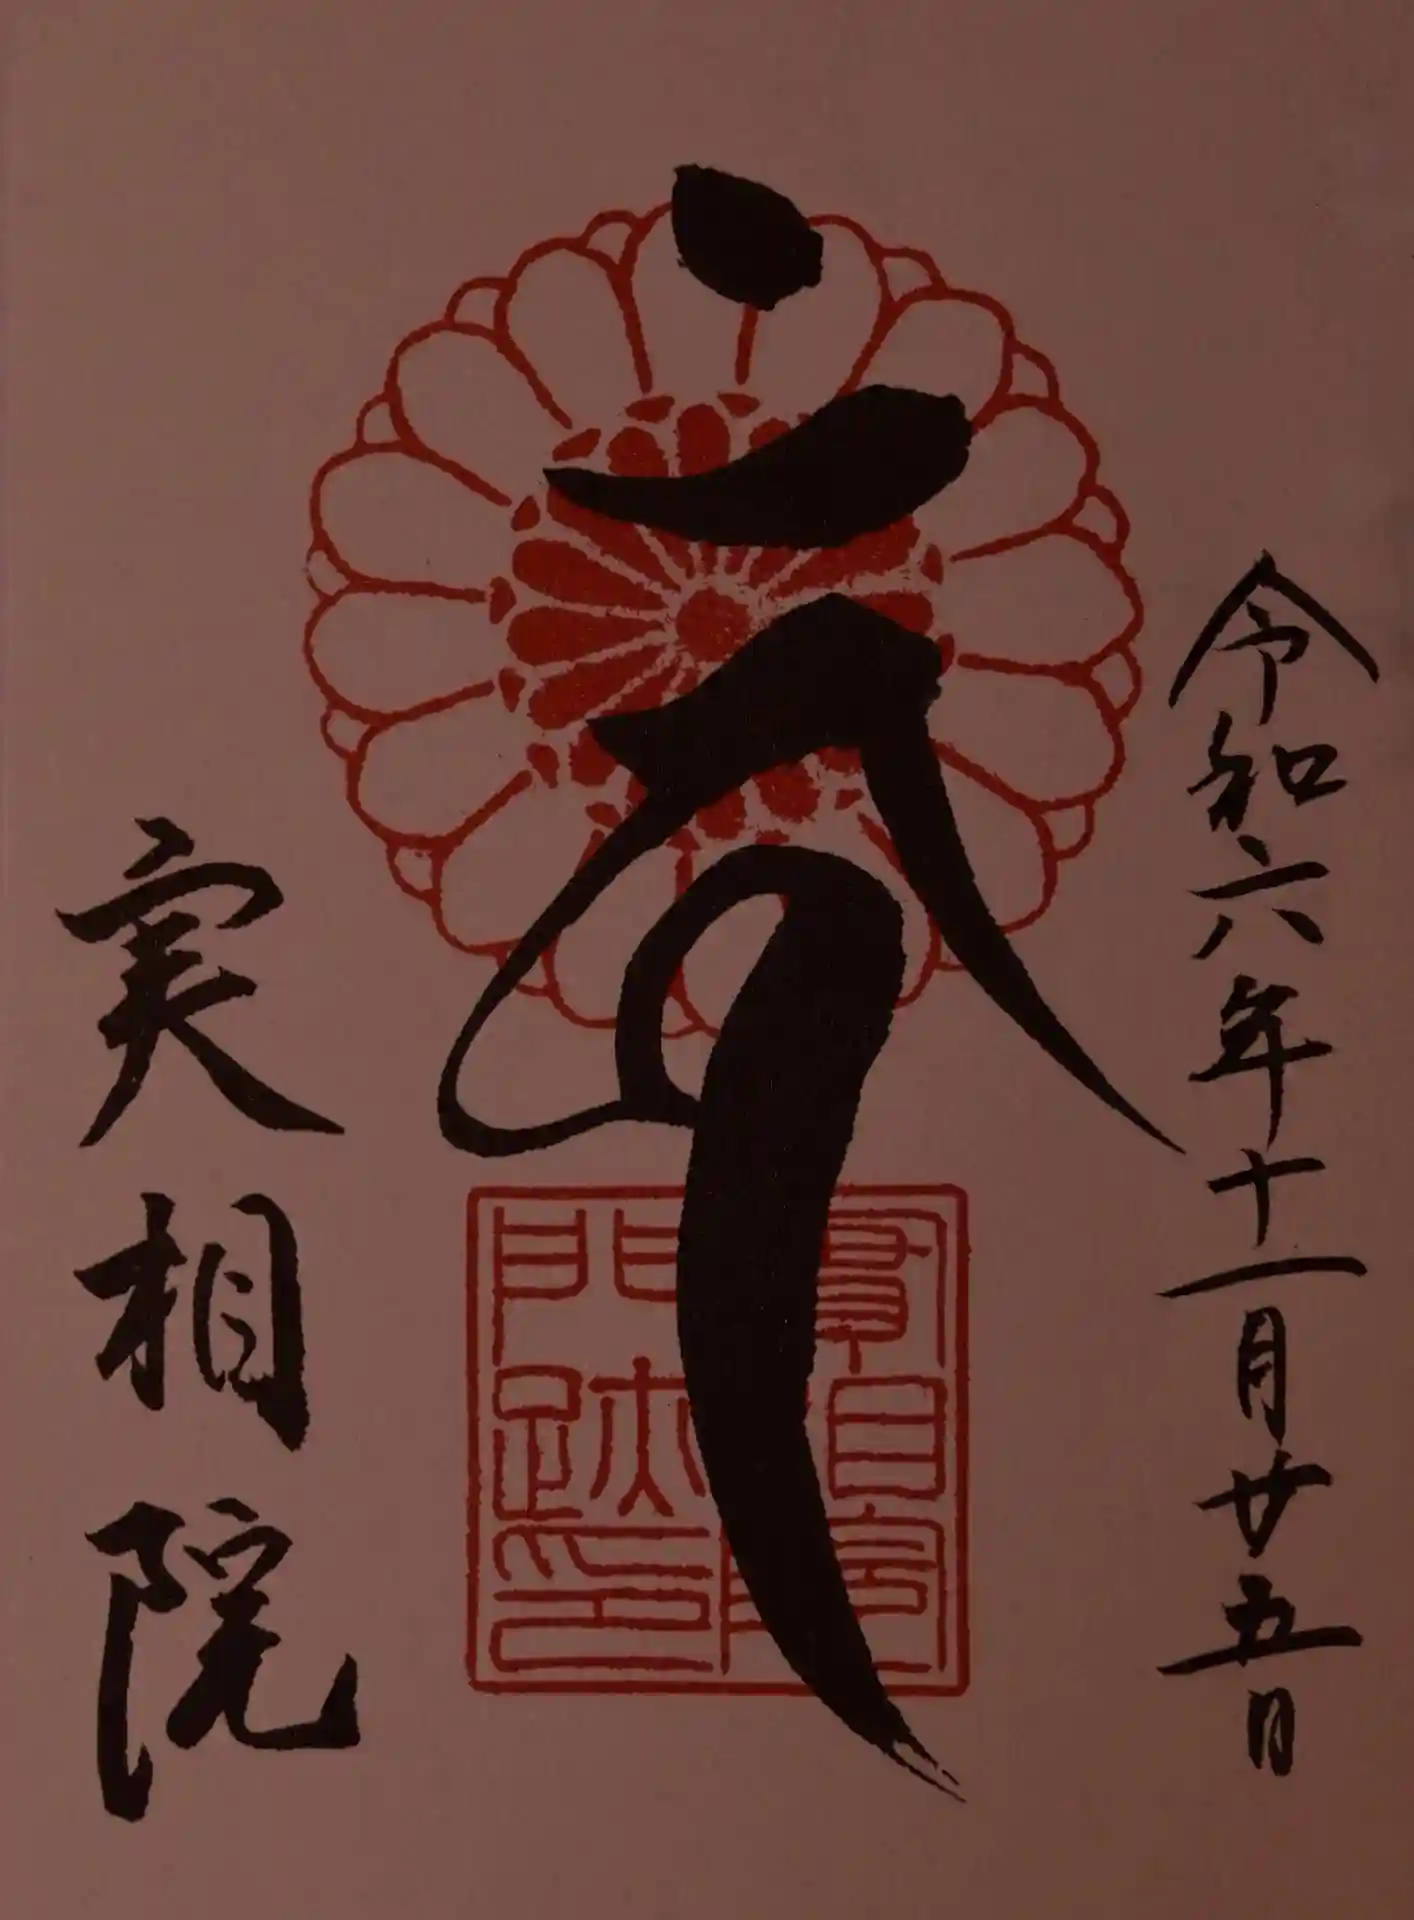 令和六年十一月廿五日
門跡印
実相院